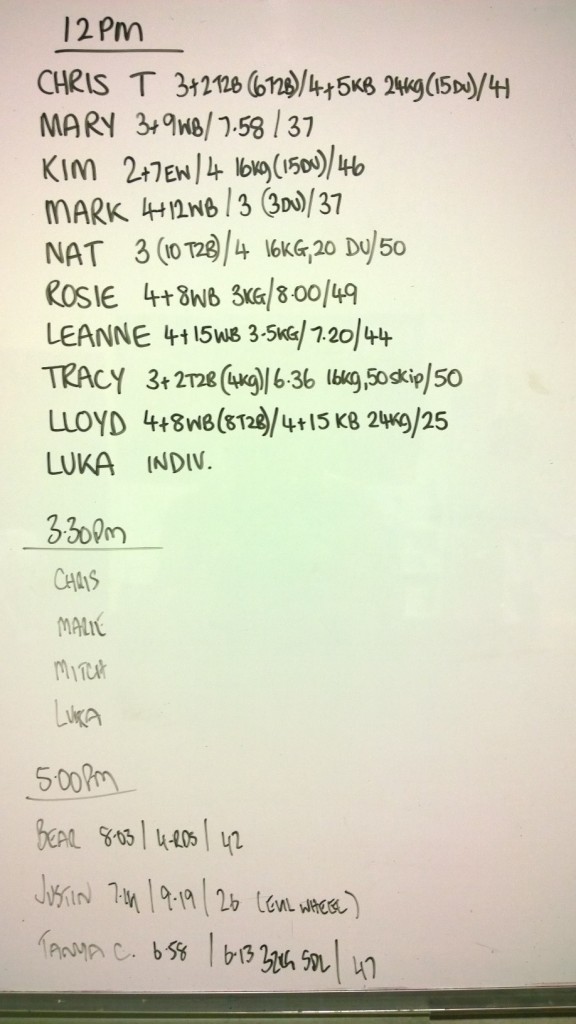 12PM
CHRIS T 3+2T2B (6T2B)/4+5KB 24kg (15DU)/41
MARY 3+9WB/7.58/37
KIM 2+7EW/4 16kg (15DU)/46
MARK 4+12WB/3 (3DU)/37
NAT 3 (10 T2B)/4 16KG, 20 DU/50
ROSIE 4+8WB 3KG/8.00/49
LEANNE 4+15WB 3.5KG/7.20/44
TRACY 3+2T2B (4kg)/6.36 16kg, 50 skip/50
LLOYD 4+8WB (8T2B)/4+15 KB 24KG/25
LUKA INDIV.
3.30Pm
CHRIS
MITCH
LUKA
5.00Pm
BEAR 8.03 | 4-RDS | 42
JUSTIN | 9.19 | 26 (EVIL WHEEL)
TANYA C. 6.58 | 6.13 32KG | 47